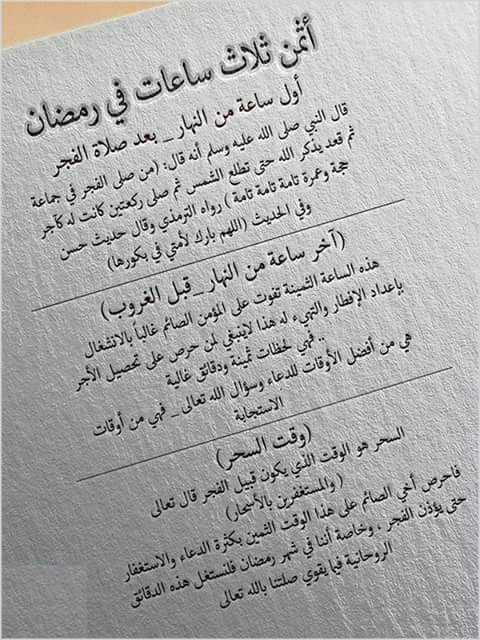 أثمن ثلاث ساعات في رمضان
أول ساعة من النهار _ بعد صلاة الفجر
قال النبي صلى الله عليه وسلم أنه قال: (من صلى الفجر في جماعة
ثم قعد يذكر الله حتى تطلع الشمس ثم صلى ركعتين كانت له كآجر
حجة وعمرة تامة تامة تامة ) رواه الترمذي وقال حديث حسن
وفي الحديث (اللهم بارك لأمتي في بكورها)
(آخر ساعة من النهار _قبل الغروب)
هذه الساعة الثمينة تفوت على المؤمن الصائم غالباً بالانشغال
بإعداد الإفطار والتهيء له هذا لاينبغي لمن حرص على تحصيل الأجر
.. فهي لحظات ثمينة ودقائق غالية
هي من أفضل الأوقات للدعاء وسؤال الله تعالى _ فهي من أوقات
الاستجابة
(وقت السحر)
السحر هو الوقت الذي يكون قبيل الفجر قال تعالى
( والمستغفرين بالأسحار)
فاحرص أخي الصائم على هذا الوقت الثمين بكثرة الدعاء والاستغفار
حتى يؤذن الفجر ، وخاصة أننا في شهر رمضان فلنستغل هذه الدقائق
الروحانية فيما يقوي صلتنا بالله تعالى